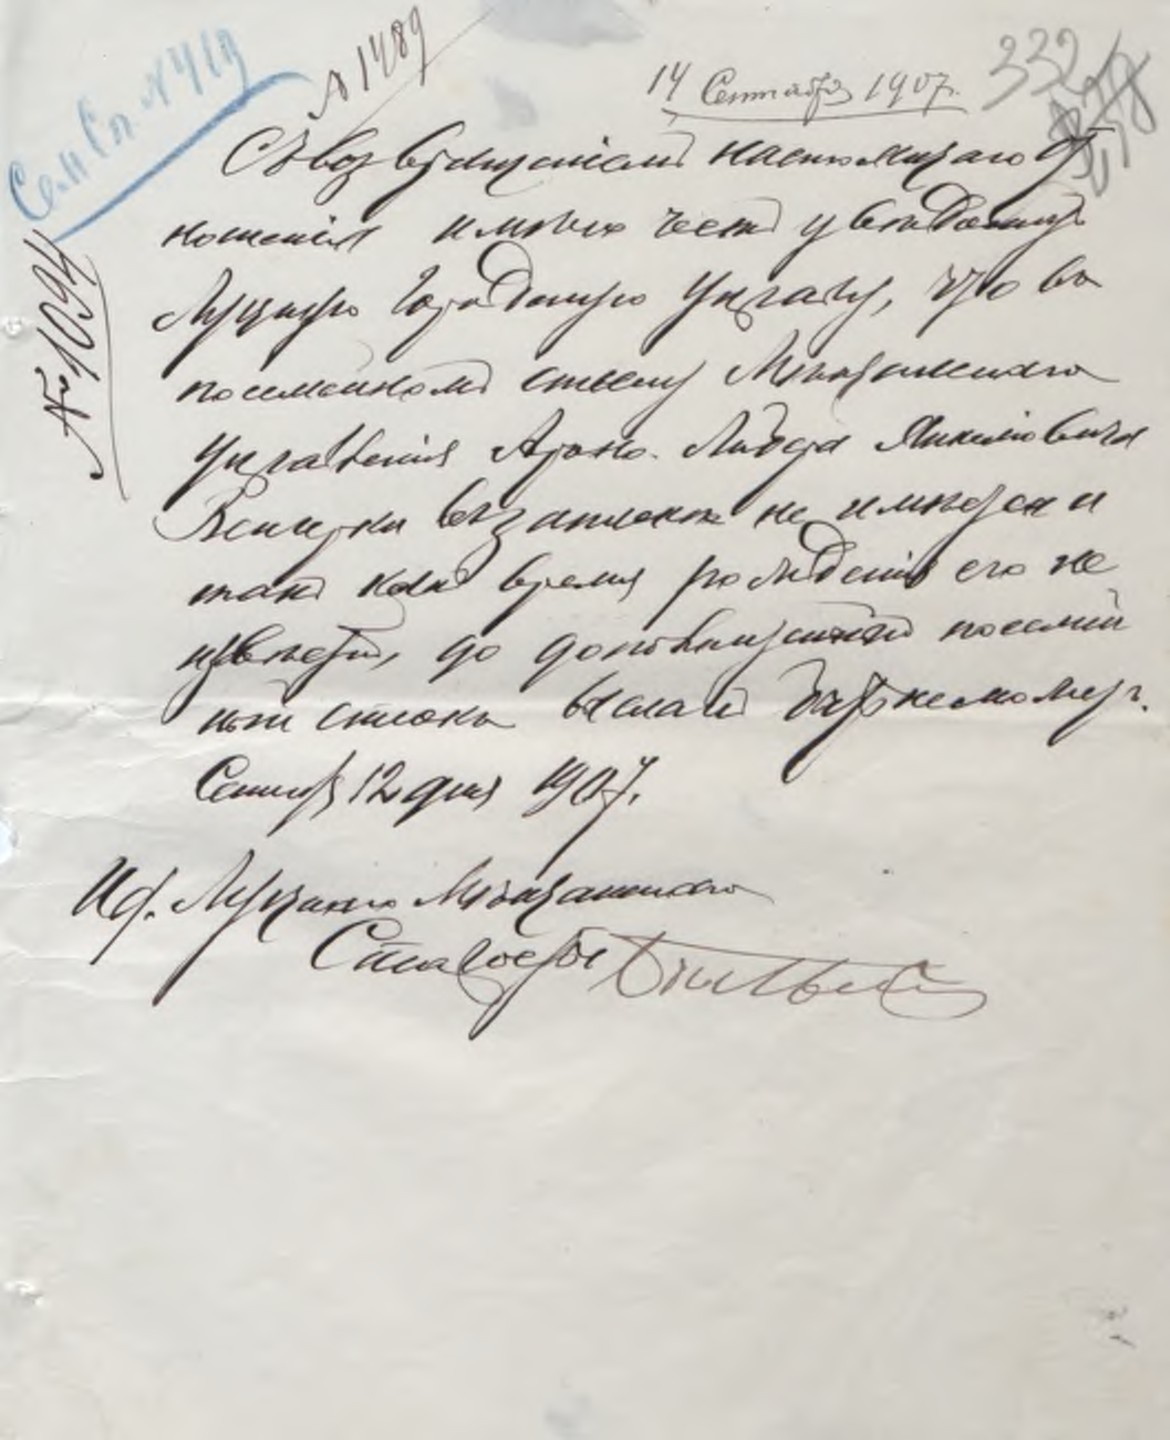 Сем Сп. № 419
№ 1489
14 Сентября 1907.
332
№ 1094
Съ возвращеніемъ настоящаго от
ношенія имѣю честь увѣдомить
Луцкую Городскую Управу, что въ
посемейномъ списку Мѣщанскаго
Управленія Ароно. Лейба Янкелевича
въ заменъ не имѣется и
такъ какъ время рожденія его не
извѣстно, до посемей
ный списокъ выслать
Сентяб 12 дня 1907.
И.д. Луцкаго Мѣщанскаго
Старосты